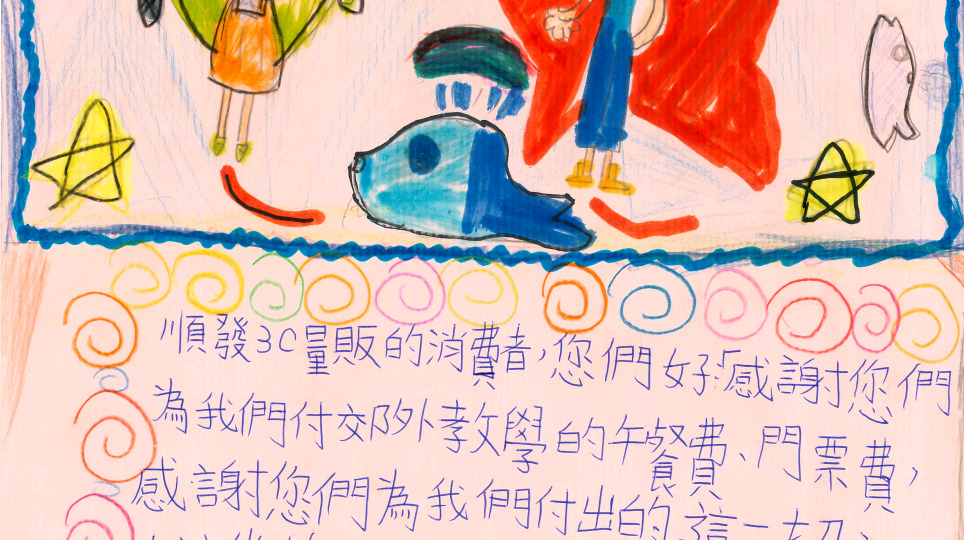 順發3C量販的消費者，您們好！感謝您們
為我們付交郊外教學的午餐費、門票費，
感謝您們為我們付出的這一切，